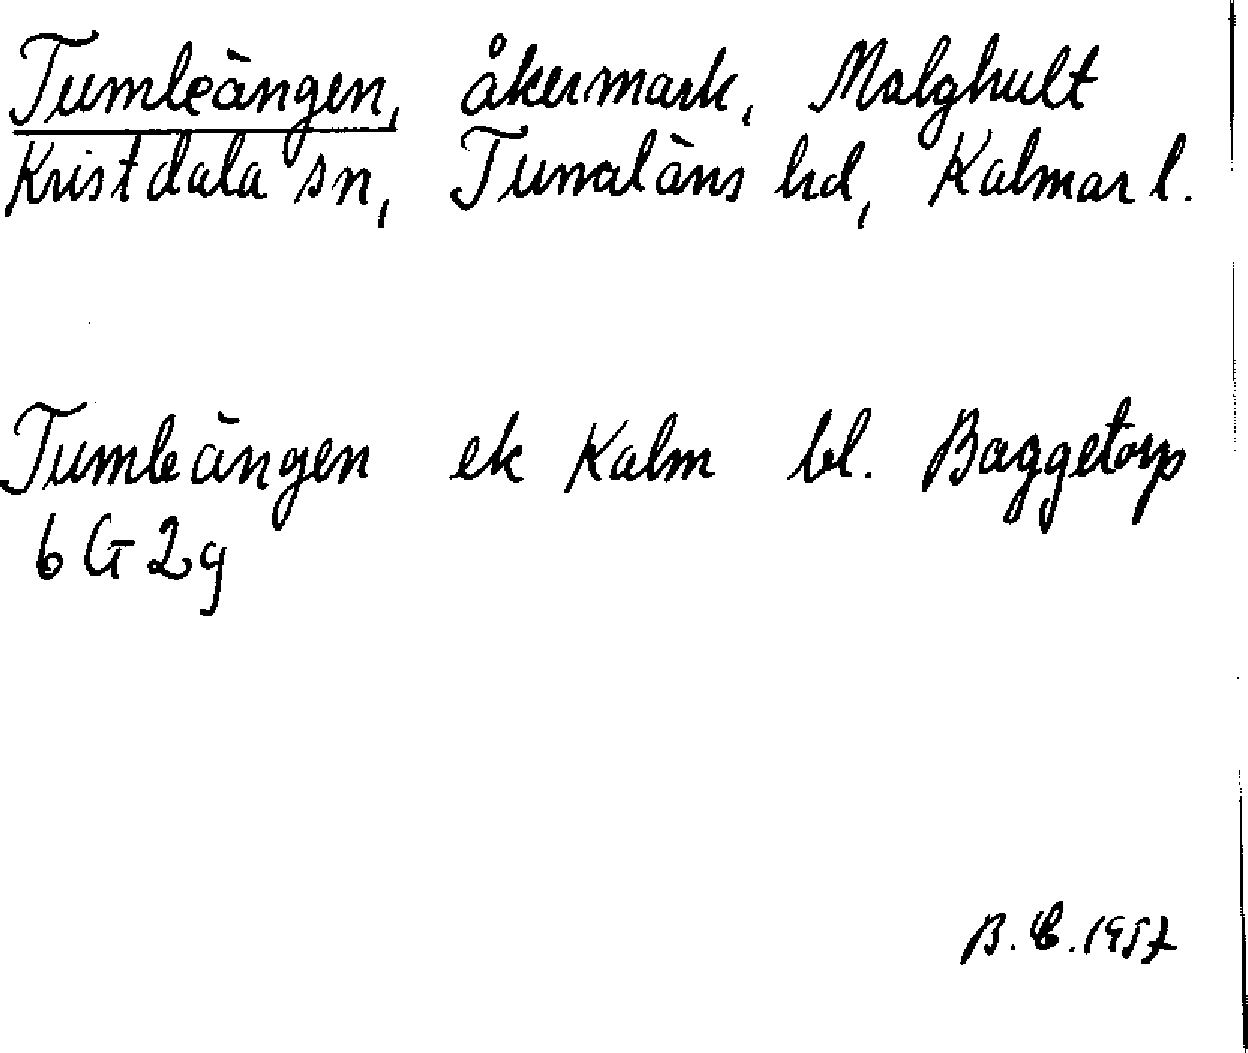 Tumleängen, åkermark, Malghult
Kristdala sn, Tunaläns hd, Kalmar l.
Tumleängen ek Kalm bl. Baggetorp
6 G 2g
B. E. 1957